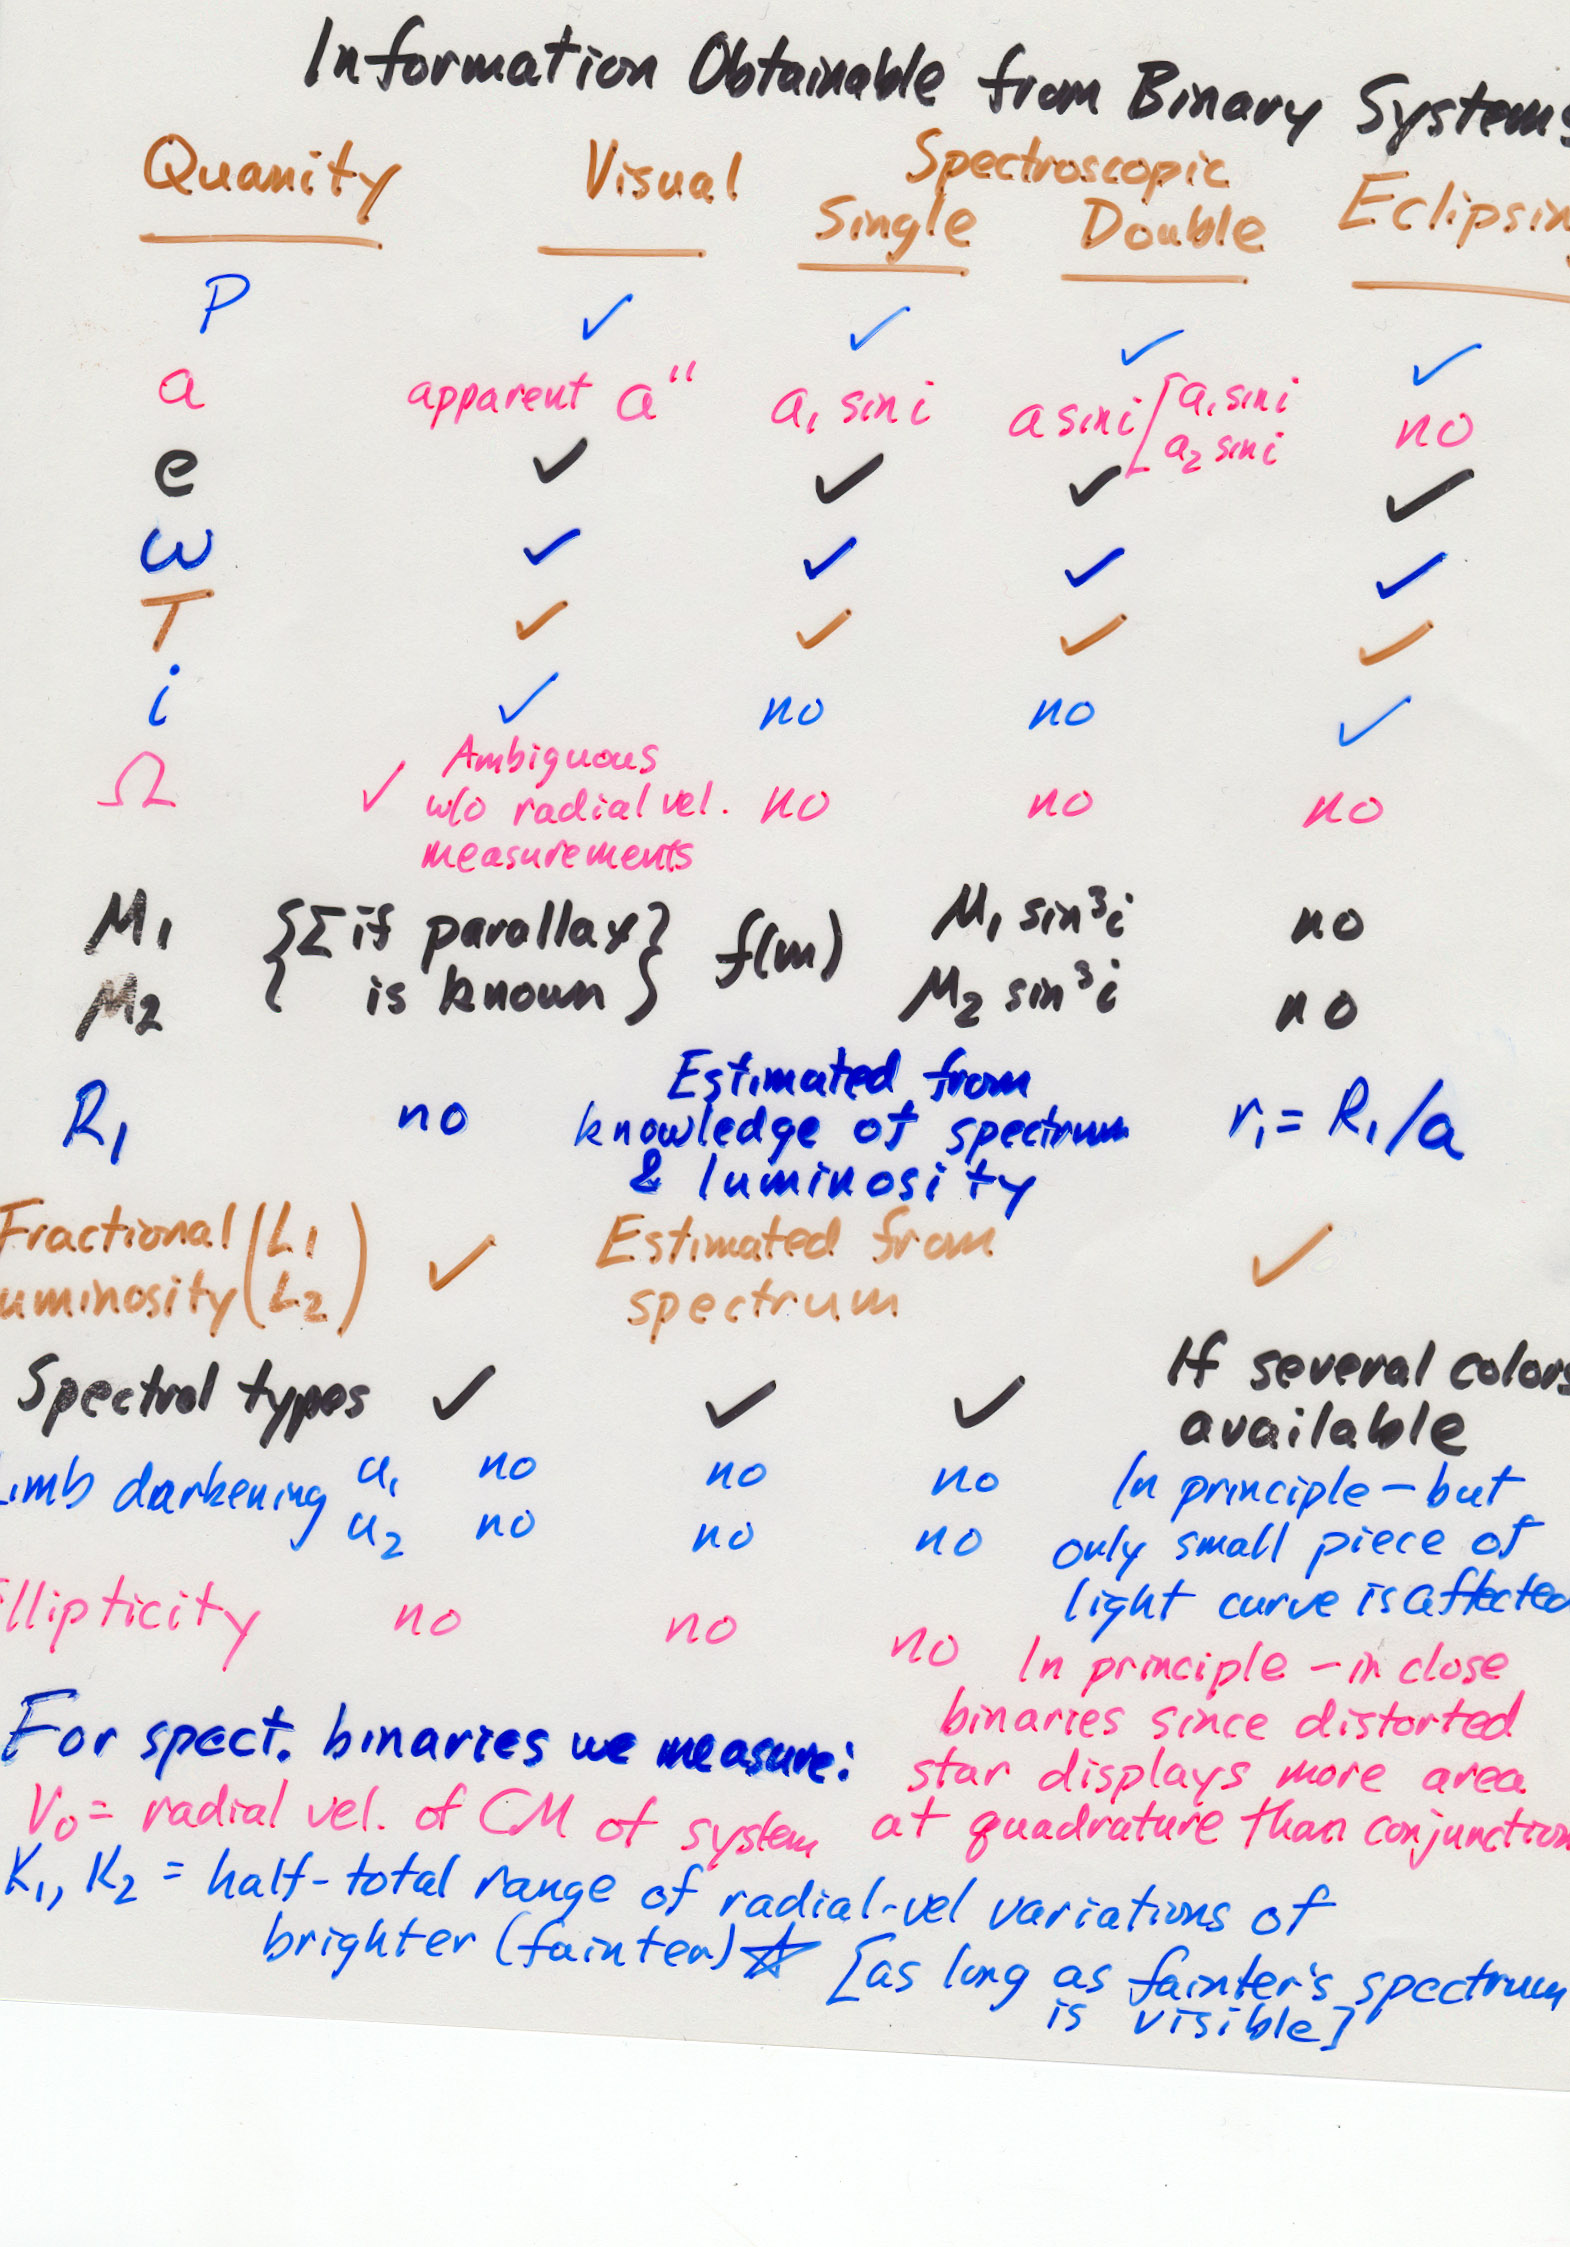 Information Obtainable from Binary Systems
Quanity Visual Spectroscopic Eclipsin
Single Double
P ✓ ✓ ✓ ✓
a apparent a" a₁ sin i a sin i [a₁ sin i no
a₂ sin i
e ✓ ✓ ✓ ✓
ω ✓ ✓ ✓ ✓
T ✓ ✓ ✓ ✓
i ✓ no no ✓
Ω ✓ Ambiguous no no no
w/o radial vel.
measurements
M₁ {Σ if parallax} f(m) M₁ sin³i no
M₂ { is known } M₂ sin³i no
R₁ no Estimated from r₁ = R₁/a
knowledge of spectrum
& luminosity
Fractional (L₁ ✓ Estimated from ✓
uminosity (L₂) spectrum
Spectral types ✓ ✓ ✓ If several colors
available
Limb darkening u₁ no no no In principle - but
u₂ no no no only small piece of
light curve is affected
Ellipticity no no no In principle - in close
binaries since distorted
star displays more area
at quadrature than conjunction
For spect. binaries we measure:
V₀ = radial vel. of CM of system
K₁, K₂ = half-total range of radial-vel variations of
brighter (fainter) ☆ [as long as fainter's spectrum
is visible]